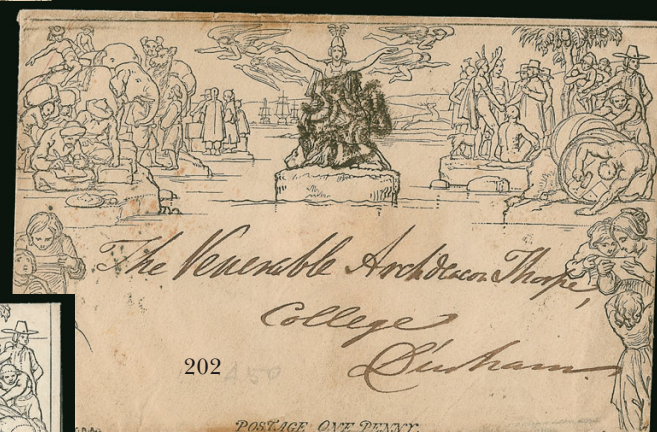 The Venerable Archdeacon Thorpe,
College
Durham
202
450
POSTAGE ONE PENNY.